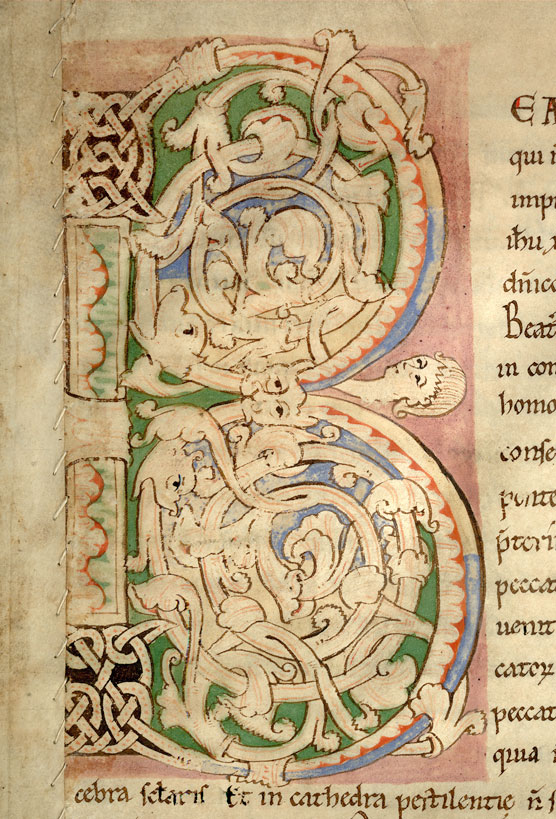 B
EA
qui
imp
ihu
dnic
Beat
in con
homo
conse
ponte
p̄teri
peccat
uenit
cator
peccat
quia
cebra sclaris Et in cathedra pestilentie n̄ s